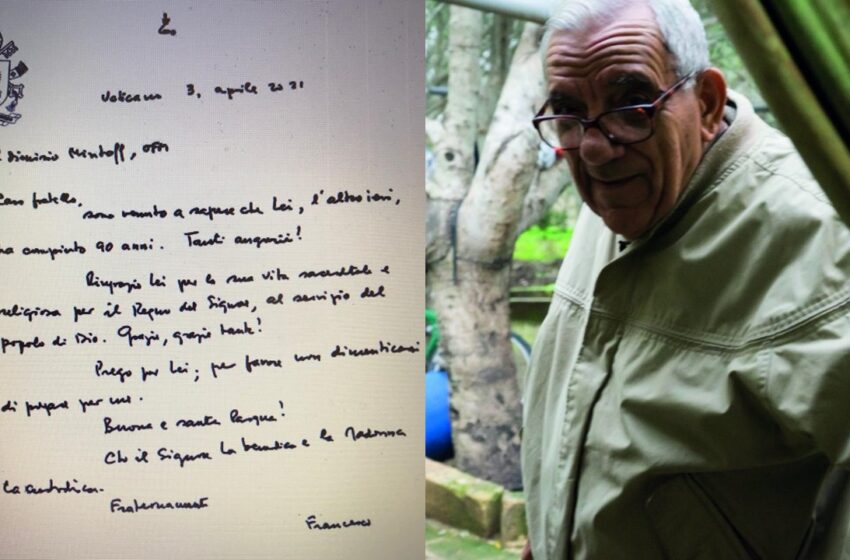 Vaticano 3, aprile 2021
Dionisio Mintoff, OFM
Caro fratello,
sono venuto a sapere che Lei, l'altro ieri,
ha compiuto 90 anni. Tanti auguri!
Ringrazio Lei per la sua vita sacerdotale e
religiosa per il Regno del Signore, al servizio del
popolo di Dio. Grazie, grazie tante!
Prego per Lei; per favore non dimenticarsi
di pregare per me.
Buona e santa Pasqua!
Che il Signore La benedica e la Madonna
La custodisca.
Fraternamente
Francesco